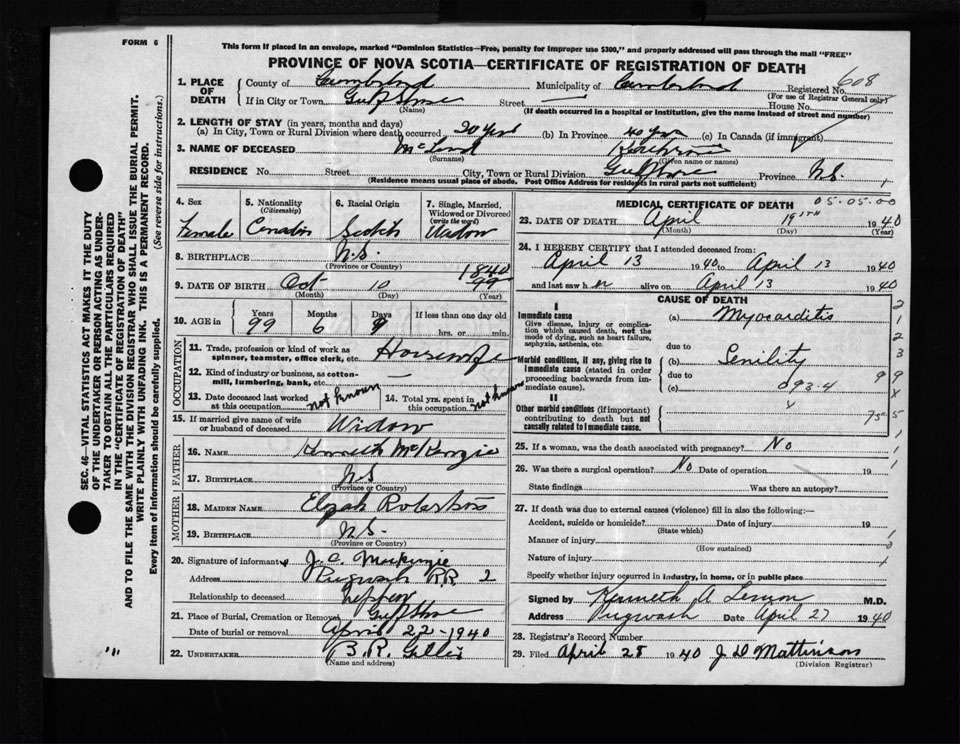 FORM 6
This form if placed in an envelope, marked "Dominion Statistics—Free, penalty for improper use $300," and properly addressed will pass through the mail "FREE"
PROVINCE OF NOVA SCOTIA—CERTIFICATE OF REGISTRATION OF DEATH
608
1. PLACE OF DEATH County of Cumberland Municipality of Cumberland Registered No.
(For use of Registrar General only)
If in City or Town Gulf Shore Street — House No.
(Name) (If death occurred in a hospital or institution, give the name instead of street and number)
2. LENGTH OF STAY (in years, months and days)
(a) In City, Town or Rural Division where death occurred 20 Years (b) In Province 40 years (c) In Canada (if immigrant)
3. NAME OF DECEASED McLeod
(Surname) (Given name or names)
RESIDENCE No. Street City, Town or Rural Division Gulf Shore Province N.S. 1
(Residence means usual place of abode. Post Office Address for residents in rural parts not sufficient)
4. Sex 5. Nationality (Citizenship) 6. Racial Origin 7. Single, Married, Widowed or Divorced (write the word)
Female Canadian Scotch Widow
8. BIRTHPLACE N.S.
(Province or Country)
1840
9. DATE OF BIRTH Oct 10 99
(Month) (Day) (Year)
10. AGE in Years Months Days If less than one day old
99 6 9 hrs. or min.
OCCUPATION
11. Trade, profession or kind of work as spinner, teamster, office clerk, etc. Housewife
12. Kind of industry or business, as cotton-mill, lumbering, bank, etc. —
13. Date deceased last worked at this occupation not known 14. Total yrs. spent in this occupation not known
15. If married give name of wife or husband of deceased Widow
FATHER
16. NAME Kenneth McKenzie
17. BIRTHPLACE N.S
(Province or Country)
MOTHER
18. MAIDEN NAME Elizah Robertson
19. BIRTHPLACE N.S.
(Province or Country)
20. Signature of informant J. C. MacKenzie
Address Pugwash RR 2
Relationship to deceased
21. Place of Burial, Cremation or Removal Gulf Shore
Date of burial or removal April 22 - 1940
22. UNDERTAKER B. R. Gillis
(Name and address)
MEDICAL CERTIFICATE OF DEATH 05-05-00
23. DATE OF DEATH April 19TH 1940
(Month) (Day) (Year)
24. I HEREBY CERTIFY that I attended deceased from:
April 13 1940 to April 13 1940
and last saw her alive on April 13 1940
CAUSE OF DEATH
I
Immediate cause
Give disease, injury or complication which caused death, not the mode of dying, such as heart failure, asphyxia, asthenia, etc.
(a) Myocarditis
due to
Morbid conditions, if any, giving rise to immediate cause (stated in order proceeding backwards from immediate cause).
(b) Senility
due to
(c) 093.4
II
Other morbid conditions (if important) contributing to death but not causally related to immediate cause.
25. If a woman, was the death associated with pregnancy? No
26. Was there a surgical operation? No Date of operation 19
State findings Was there an autopsy?
27. If death was due to external causes (violence) fill in also the following:—
Accident, suicide or homicide? Date of injury 19
(State which)
Manner of injury
(How sustained)
Nature of injury
Specify whether injury occurred in industry, in home, or in public place
Signed by Kenneth A M.D.
Address Pugwash Date April 27 1940
28. Registrar's Record Number
29. Filed April 28 1940 J D Mattinson
(Division Registrar)
SEC. 46—VITAL STATISTICS ACT MAKES IT THE DUTY
OF THE UNDERTAKER OR PERSON ACTING AS UNDER-
TAKER TO OBTAIN ALL THE PARTICULARS REQUIRED
IN THE "CERTIFICATE OF REGISTRATION OF DEATH"
AND TO FILE THE SAME WITH THE DIVISION REGISTRAR WHO SHALL ISSUE THE BURIAL PERMIT.
WRITE PLAINLY WITH UNFADING INK. THIS IS A PERMANENT RECORD.
Every item of information should be carefully supplied. (See reverse side for instructions.)